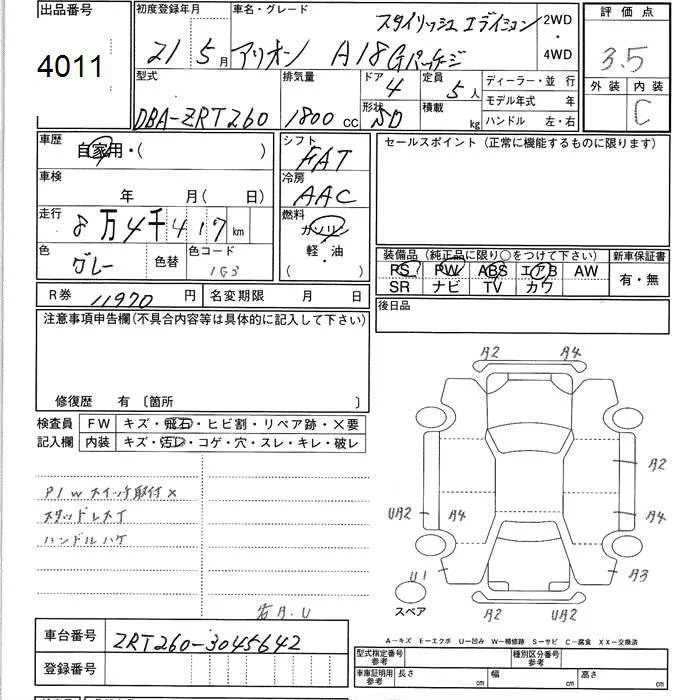 出品番号 初度登録年月 車名・グレード スタイリッシュ エディション 2WD・4WD 評価点
4011 21 5月 アリオン A18Gパッケージ 3.5
型式 排気量 ドア 4 定員 5人 ディーラー・並 行 外装 内装
DBA-ZRT260 1800cc 形状 SD 積載 kg モデル年式 年 C
ハンドル 左・右
車歴 自家用・( ) シフト FAT セールスポイント (正常に機能するものに限ります)
車検 年 月( 日) 冷房 AAC
走行 8万4千417km 燃料 ガソリン
軽・油
( )
色 グレー 色替 色コード 1G3
装備品 (純正品に限り○をつけて下さい) 新車保証書
PS PW ABS エアB AW 有・無
SR ナビ TV カワ
R券 11970円 名変期限 月 日 後日品
注意事項申告欄(不具合内容等は具体的に記入して下さい)
修復歴 有 〔箇所
検査員 FW キズ・飛石・ヒビ割・リペア跡・×要
記入欄 内装 キズ・汚レ・コゲ・穴・スレ・キレ・破レ
A2 A4
A2
UA2 A4 A4
U1 A3
スペア A2 UA2
P/W スイッチ取付×
スタッドレスイ
ハンドルハゲ
若A.U
A-キズ E-エクボ U-凹み W-補修跡 S-サビ C-腐食 XX-交換済
車台番号 ZRT260-3045642
登録番号
型式指定番号 参考 種別区分番号 参考
車庫証明用 参考 長さ cm 幅 cm 高さ cm